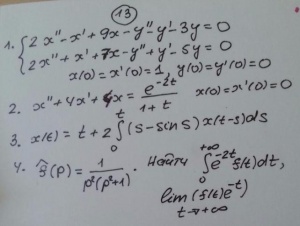 13
1. { 2x''-x'+9x-y''-y'-3y=0
2x''+x'+7x-y''+y'-5y=0
x(0)=x'(0)=1, y(0)=y'(0)=0
2. x''+4x'+4x = e^{-2t}/(1+t) x(0)=x'(0)=0
3. x(t)=t+2∫_0^t (s-sin s) x(t-s)ds
4. ŝ(p) = 1/(p²(p²+1)). Найти ∫_0^{+∞} e^{-2t} s(t)dt,
lim_{t→+∞} (s(t)e^{-t})